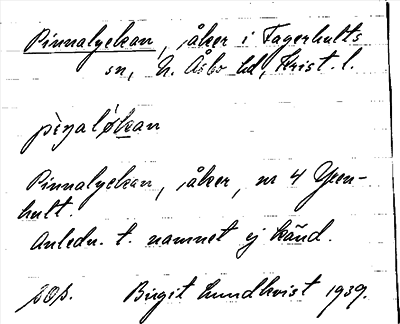 Pinnalyckan, åker i Fagerhults
sn, N. Åsbo hd, Krist. l.
Pinnalyckan, åker, nr 4 Ypen-
hult.
Anledn. t. namnet ej känd.
Birgit Lundkvist 1939.